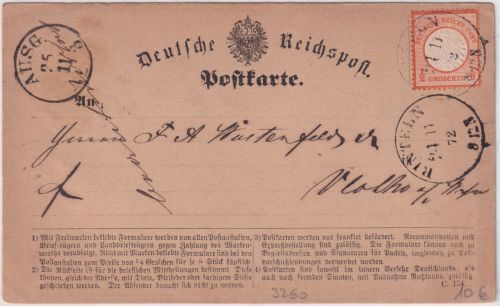 Deutsche Reichspost.
Postkarte.
AUSG.
25
11
An
RINTELN
24 11
72
Herrn F A Wüstenfeld
Vlotho
1) Mit Freimarken beklebte Formulare werden von allen Postanstalten, Briefträgern und Landbriefträgern gegen Zahlung des Markenwerths verabfolgt. Nicht mit Marken beklebte Formulare sind bei den Postanstalten zum Preise von ¼ Groschen für je 5 Stück käuflich.
2) Die Rückseite ist für die brieflichen Mittheilungen bestimmt. Diese können, gleich der Adresse, mit Tinte, Bleifeder oder farbigem Stift geschrieben werden. Der Absender braucht sich nicht zu nennen.
3) Postkarten werden nur frankirt befördert. Recommandation und Expreßbestellung sind zulässig. Die Formulare können auch zu Begleitadressen und Signaturen für Packete, imgleichen zu Postvorschußsendungen verwendet werden.
4) Postkarten sind sowohl im innern Verkehr Deutschlands, als auch nach fremden Staaten, mit Ausnahme Rußlands, zulässig.
C. 154.
3260
10 €